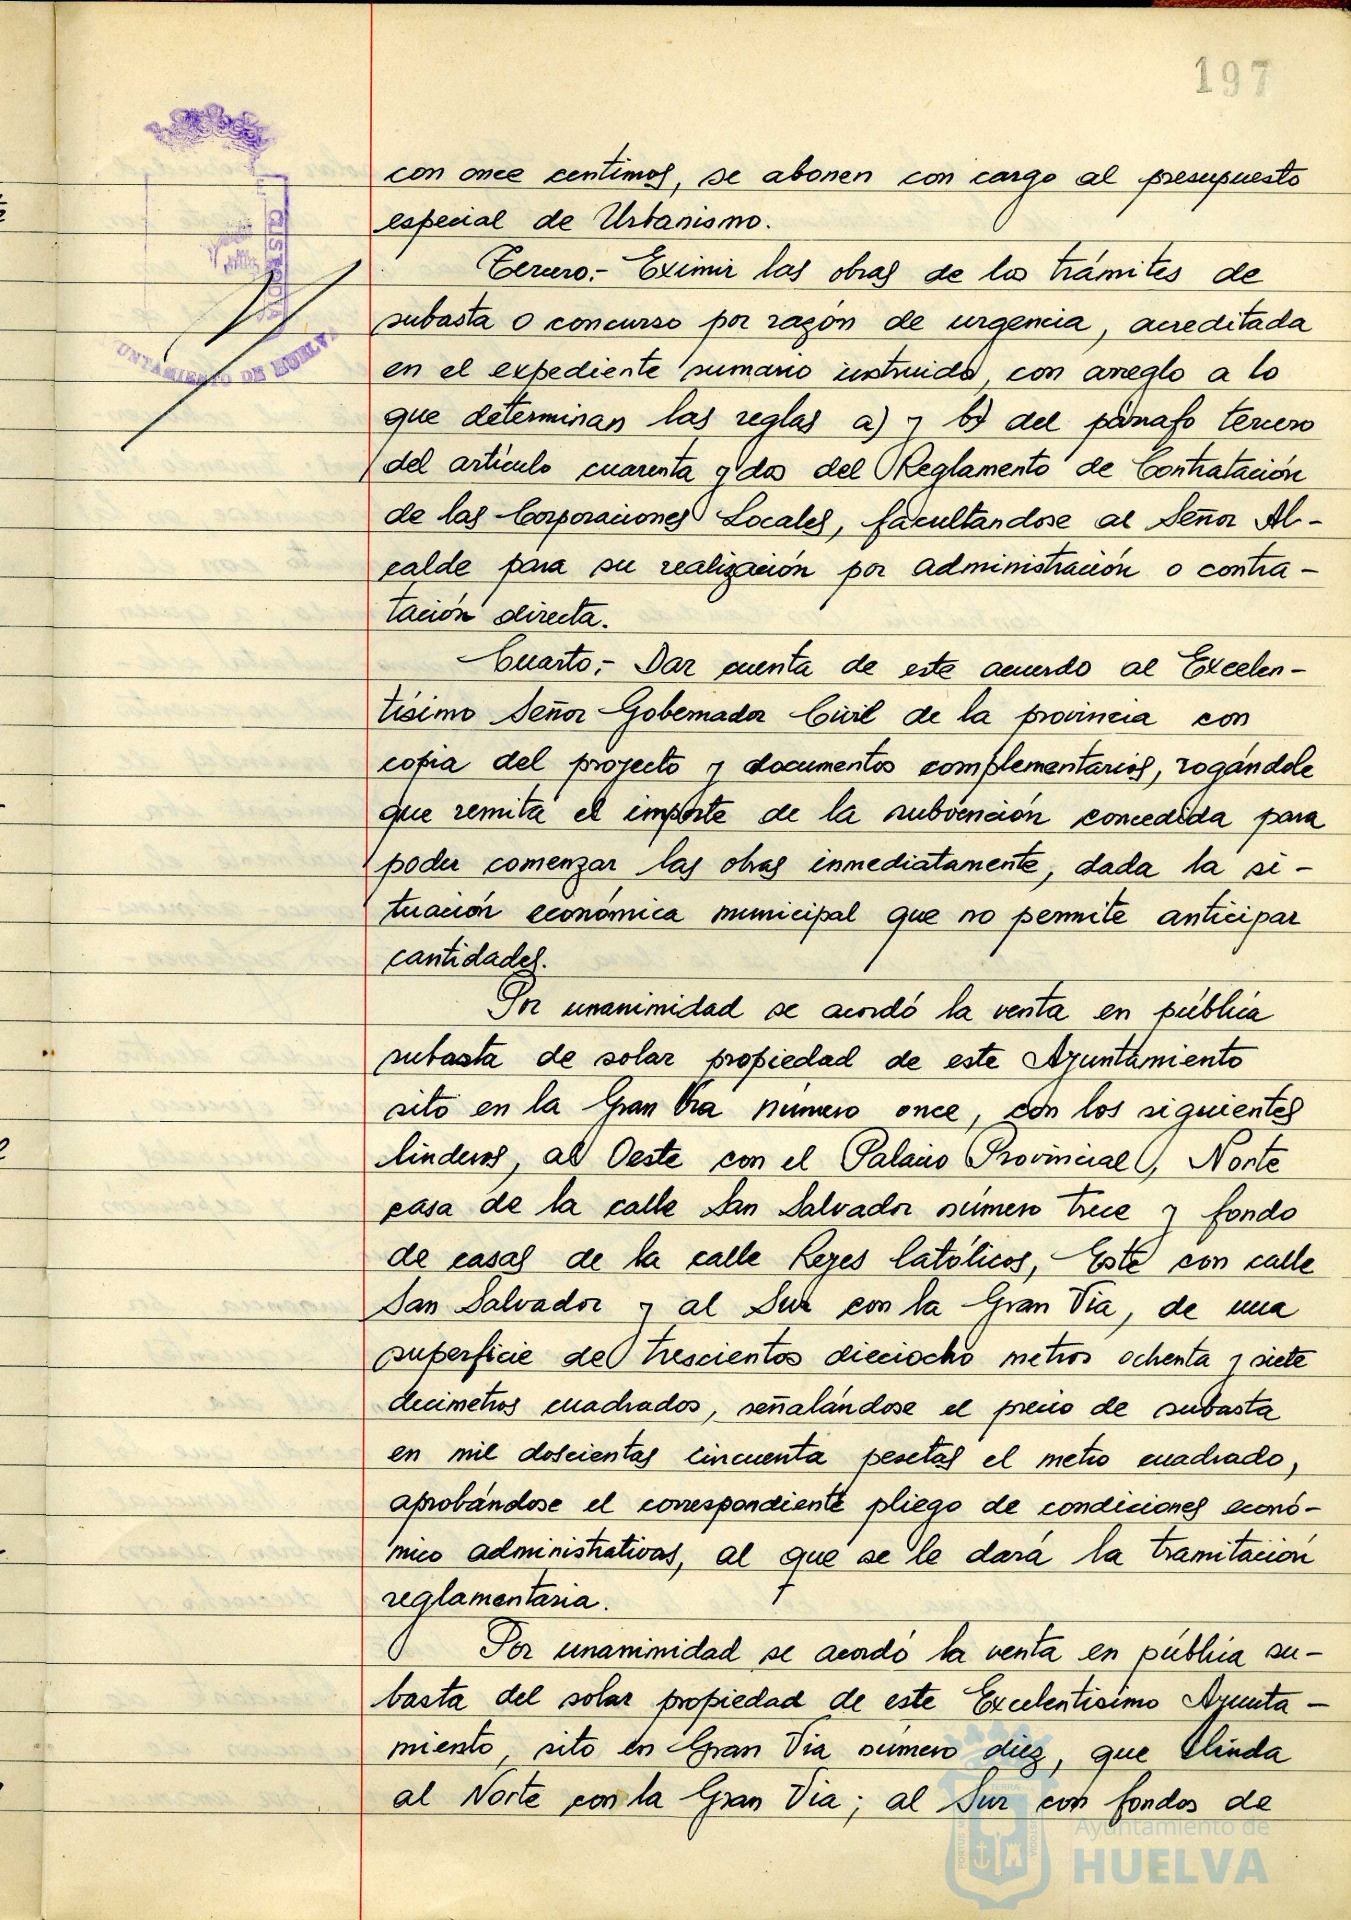 197
con once centimos, se abonen con cargo al presupuesto
especial de Urbanismo.
Tercero.- Eximir las obras de los trámites de
subasta o concurso por razón de urgencia, acreditada
en el expediente sumario instruido, con arreglo a lo
que determinan las reglas a) y b) del párrafo tercero
del artículo cuarenta y dos del Reglamento de Contratación
de las Corporaciones Locales, facultandose al Señor Al-
calde para su realización por administración o contra-
tación directa.
Cuarto.- Dar cuenta de este acuerdo al Excelen-
tísimo Señor Gobernador Civil de la provincia con
copia del proyecto y documentos complementarios, rogándole
que remita el importe de la subvención concedida para
poder comenzar las obras inmediatamente, dada la si-
tuación económica municipal que no permite anticipar
cantidades.
Por unanimidad se acordó la venta en pública
subasta de solar propiedad de este Ayuntamiento
sito en la Gran Vía número once, con los siguientes
linderos, al Oeste con el Palacio Provincial, Norte
casa de la calle San Salvador número trece y fondo
de casas de la calle Reyes Católicos, Este con calle
San Salvador y al Sur con la Gran Vía, de una
superficie de trescientos dieciocho metros ochenta y siete
decimetros cuadrados, señalándose el precio de subasta
en mil doscientas cincuenta pesetas el metro cuadrado,
aprobándose el correspondiente pliego de condiciones econó-
mico administrativas, al que se le dará la tramitación
reglamentaria.
Por unanimidad se acordó la venta en pública su-
basta del solar propiedad de este Excelentisimo Ayunta-
miento, sito en Gran Vía número diez, que linda
al Norte con la Gran Vía; al Sur con fondos de
CUSTODIA
UNTAMIENTO DE HUELVA
Ayuntamiento de
HUELVA